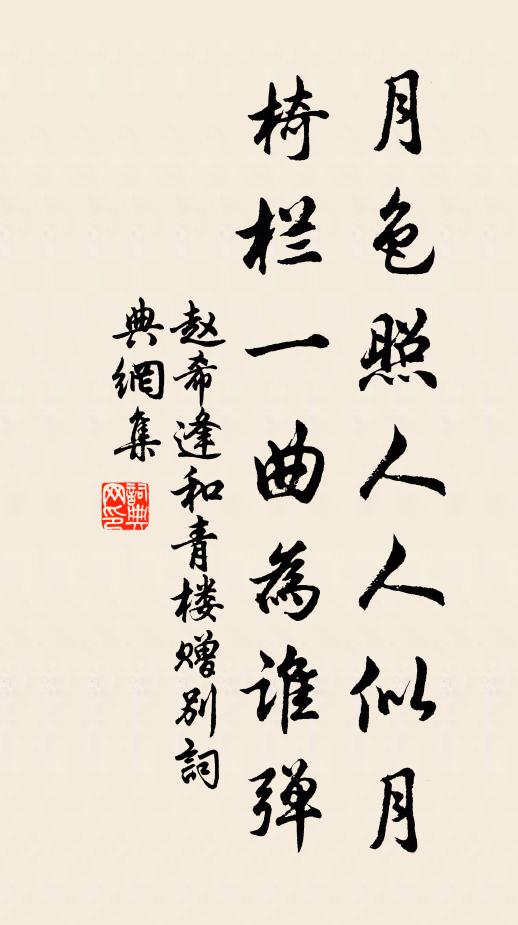 月色照人人似月
椅栏一曲為谁弹
赵希逢和青楼赠别詞
典網集
詞典
网印